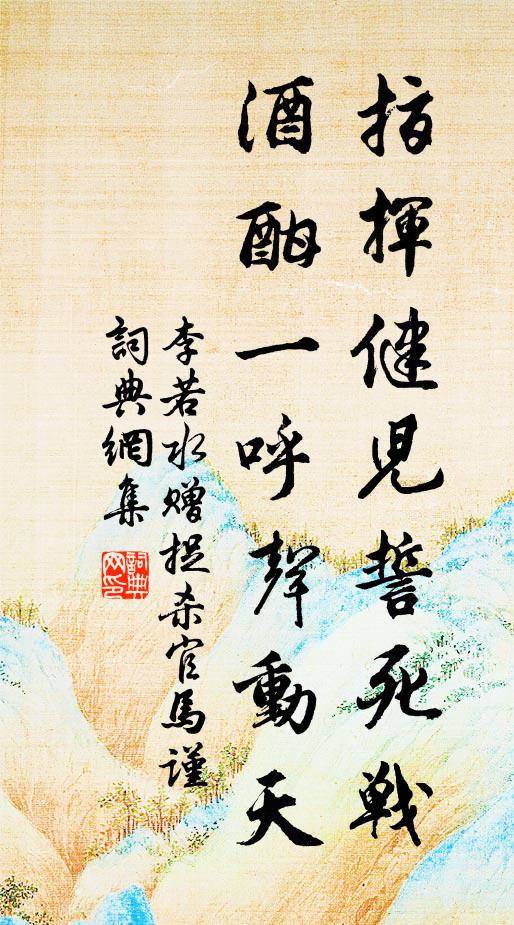 指揮健児誓死戦
酒酣一呼聲動天
李若水贈捉杀官馬謹
詞典網集
詞典网印